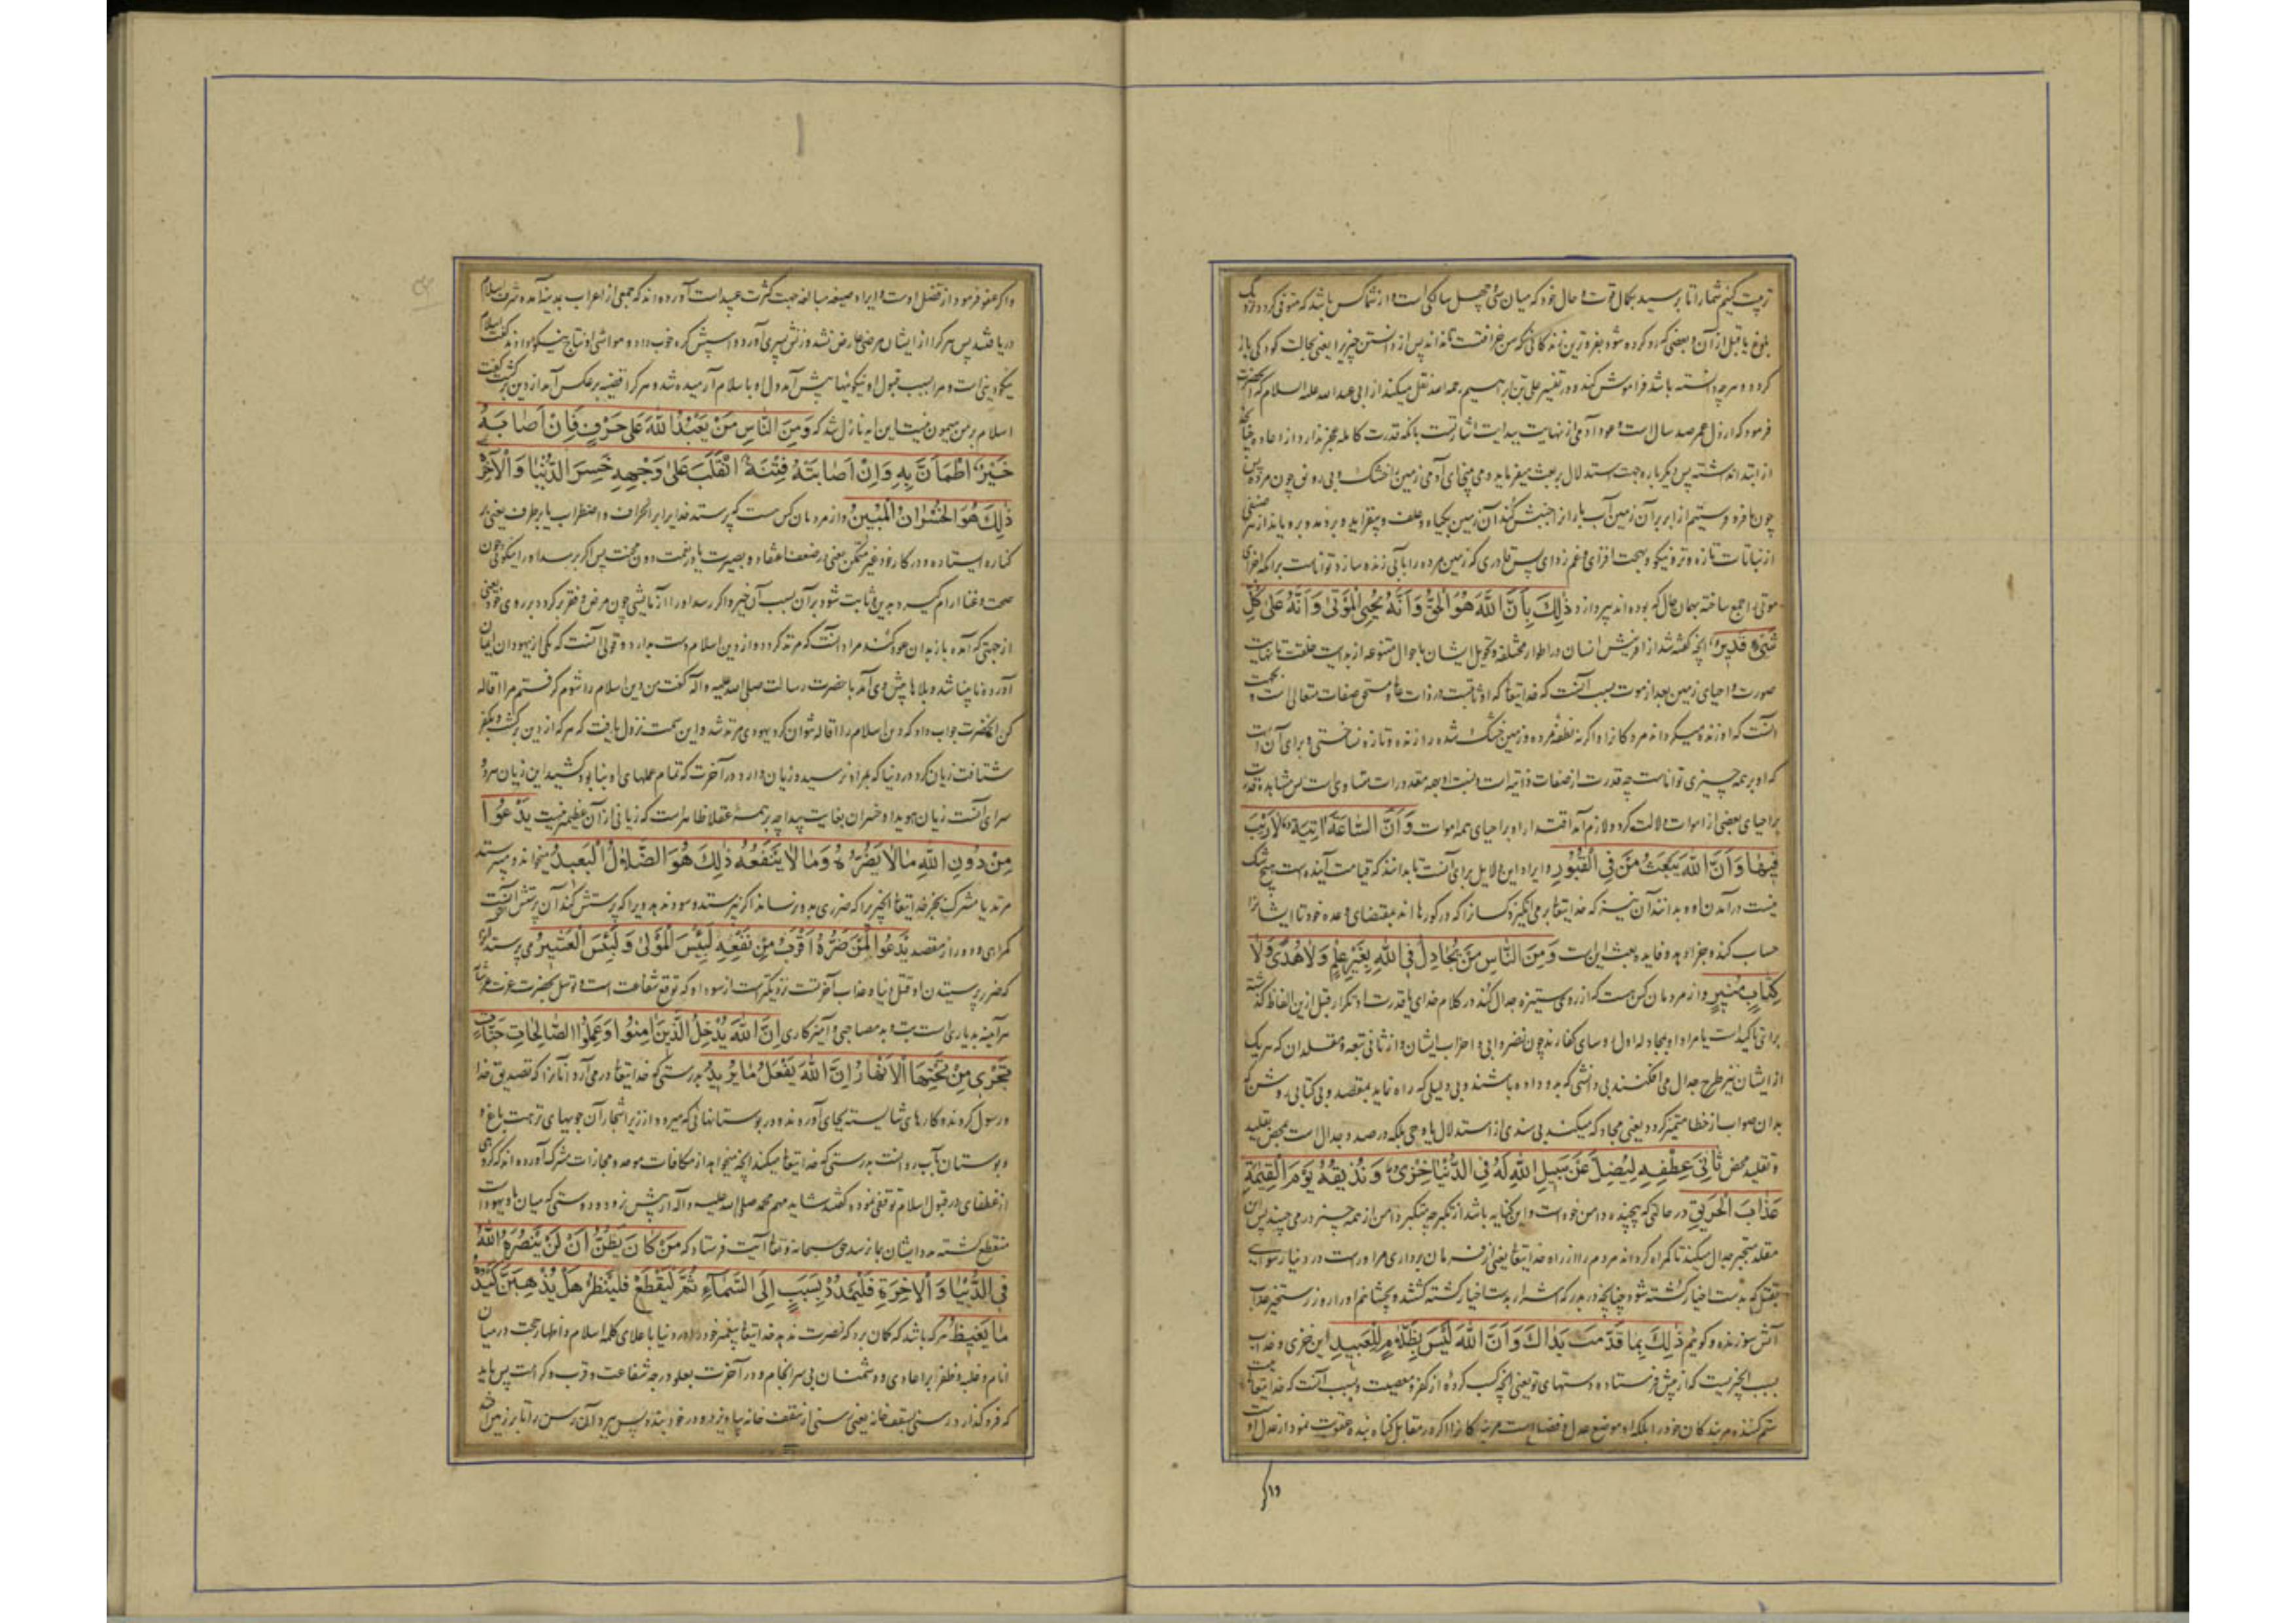 تربیت کنیم شما را تا برسید بکمال قوت و حال خود که میان سی و چهل سالگی است و از شما کس باشد که متوفی گردد نزدیک
بلوغ یا قبل از آن و بعضی رد کرده شود بفروترین زندگانی که سن خرافت است تا نداند پس از دانستن چیزی را یعنی بحالت کودکی باز
گردد و هرچه دانسته باشد فراموش کند و در تفسیر علی بن ابراهیم رحمه الله نقل میکند از ابی عبد الله علیه السلام که آنحضرت
فرمود که ارذل عمر صد سال است و عود آدمی از نهایت ببدایت اشارتست بانکه قدرت کامله عجز ندارد از اعاده چنانچه
از ابتدا نداشته پس دیگر باره جهت استدلال بر بعث میفرماید و می بینی ای آدمی زمین را خشک و بی رونق چون مرده پس
چون ما فرو فرستیم از ابر بر آن زمین آب باران جنبش کند آن زمین بگیاه و علف و بیفزاید و بردمد و برویاند از هر صنفی
از نباتات تازه و تر و نیکو و بهجت افزای و غم زدای پس قادری که زمین مرده را بآبی زنده سازد توانا است برانکه اجزای
موتی را جمع ساخته بهمان حال که بوده اند بپردازد ذٰلِكَ بِأَنَّ اللّٰهَ هُوَ الْحَقُّ وَأَنَّهُ يُحْيِي الْمَوْتٰى وَأَنَّهُ عَلٰى كُلِّ
شَيْءٍ قَدِيرٌ انچه گفته شد از افرینش انسان در اطوار مختلفه و تحویل ایشان باحوال متنوعه از بدایت خلقت تا نهایت
صورت و احیای زمین بعد از موت بسبب آنست که خدایتعالی که او ثابت است در ذات و مستحق صفات متعالی است و بجهت
انست که او زنده میگرداند مردگانرا و اگر نه نطفه مرده و زمین خشک شده را زنده و تازه نساختی و برای آن است
که او بر همه چیزی توانا است چه قدرت از صفات ذاتیه است و نسبت او بهمه مقدورات متساوی است پس مشاهده قدرت
بر احیای بعضی از اموات دلالت کرد و لازم آمد اقتدار او بر احیای همه اموات وَأَنَّ السَّاعَةَ اٰتِيَةٌ لَارَيْبَ
فِيهَا وَأَنَّ اللّٰهَ يَبْعَثُ مَنْ فِي الْقُبُورِ و ایراد این دلایل برای آنست تا بدانند که قیامت آینده است هیچ شک
نیست در آمدن او و بدانند آن نیز که خدایتعالی بر می انگیزد کسانرا که در گورها اند بمقتضای وعده خود تا ایشانرا
حساب کند و جزا دهد و فایده بعث این است وَمِنَ النَّاسِ مَنْ يُجَادِلُ فِي اللّٰهِ بِغَيْرِ عِلْمٍ وَلَاهُدًى وَلَا
كِتَابٍ مُنِيرٍ و از مردمان کس هست که از روی ستیزه جدال کند در کلام خدای یا قدرت او تکرار قبل ازین الفاظ گذشته
برای تاکید است یا مراد او بمجادله اول روسای کفارند چون نضر و ابی و احزاب ایشان و از ثانی تبعه و مقلدان که هر یک
از ایشان نیز طرح جدال می افکنند بی دانشی که بدو داده باشند و بی دلیلی که راه نماید بمقصد و بی کتابی روشن که
بدان صواب از خطا متمیز گردد یعنی مجادله میکند بی سندی از استدلال یا وحی بلکه در صدد جدال است بمحض تقلید
و تقلید محض ثَانِيَ عِطْفِهِ لِيُضِلَّ عَنْ سَبِيلِ اللّٰهِ لَهُ فِي الدُّنْيَا خِزْيٌ وَنُذِيقُهُ يَوْمَ الْقِيٰمَةِ
عَذَابَ الْحَرِيقِ در حالتی که پیچیده دامن خود است و این کنایه باشد از تکبر چه متکبر دامن از همه چیز در می چیند پس این
مقلد متجبر جدال میکند تا گمراه گرداند مردم را از راه خدایتعالی یعنی از فرمان برداری مر او راست در دنیا رسوایی
بقتل که بدست اخیار کشته شود چنانچه در بدر که اشرار بدست اخیار کشته گشتند و بچشانیم او را روز رستخیز عذاب
آتش سوزنده و گوئیم ذٰلِكَ بِمَا قَدَّمَتْ يَدَاكَ وَأَنَّ اللّٰهَ لَيْسَ بِظَلَّامٍ لِلْعَبِيدِ این خزی و عذاب
بسبب انچیزیست که از پیش فرستاده دستهای تو یعنی انچه کسب کرده از کفر و معصیت و بسبب آنست که خدایتعالی نیست
ستم کننده مر بندگان خود را بلکه او موضع عدل و فضل است مر بندگانرا اگر در مقابل گناه بنده عقوبت نمود از عدل اوست
واگر
واگر عفو فرمود از فضل اوست و ایراد صیغه مبالغه جهت کثرت عبید است آورده اند که جمعی از اعراب بمدینه آمده شرف اسلام
دریافتند پس هر کرا از ایشان مرضی عارض نشد و زنش پسری آورد و اسپش کره خوب داد و مواشی او نتاج نیکو دادند گفت اسلام
نیکو دینی است و مرا بسبب قبول او نیکوئیها پیش آمد و دل او باسلام آرمیده شد و هر کرا قضیه بر عکس آمد از دین برگشت گفت
اسلام بر من میمون نیست این ایه نازل شد که وَمِنَ النَّاسِ مَنْ يَعْبُدُ اللّٰهَ عَلٰى حَرْفٍ فَإِنْ أَصَابَهُ
خَيْرٌ اطْمَأَنَّ بِهِ وَإِنْ أَصَابَتْهُ فِتْنَةٌ انْقَلَبَ عَلٰى وَجْهِهِ خَسِرَ الدُّنْيَا وَالْاٰخِرَةَ
ذٰلِكَ هُوَ الْخُسْرَانُ الْمُبِينُ و از مردمان کس هست که پرستد خدایرا بر انحراف و اضطراب یا بر طرف یعنی بر
کناره ایستاده و در کار خود غیر متمکن یعنی بر ضعف اعتقاد و بصیرت یا در نعمت دون محنت پس اگر برسد او را نیکوئی چون
صحت و غنا ارام گیرد بدین و ثابت شود بر آن بسبب آن خیر و اگر رسد او را آزمایشی چون مرض و فقر برگردد بر روی خود یعنی
از جهتی که آمده باز بدان عود کند مراد انست که مرتد گردد و از دین اسلام دست بدارد و قولی انست که یکی از یهودان ایمان
آورده نابینا شد و بلاها پیش وی آمد با حضرت رسالت صلی الله علیه و اله گفت من دین اسلام را شوم گرفتم مرا اقاله
کن انحضرت جواب داد که دین اسلام را اقاله نتوان کرد یهودی مرتد شد و این سمت نزول یافت که هر که از دین برگشت و بکفر
شتافت زیان کرد در دنیا که بمراد نرسید و زیان دارد در آخرت که تمام عملهای او نابود گشت این زیان هر دو
سرای آنست زیان هویدا و خسران بغایت پیدا چه بر همه عقلا ظاهر است که زیانی از آن عظیمتر نیست يَدْعُوا
مِنْ دُونِ اللّٰهِ مَالَا يَضُرُّهُ وَمَا لَا يَنْفَعُهُ ذٰلِكَ هُوَ الضَّلَالُ الْبَعِيدُ میخواند و میپرستد
مرتد یا مشرک بجز خدایتعالی انچیز را که ضرری بدو نرساند اگر نپرستد و سود ندهد ویرا که پرستش کند آن پرستش آنست
گمراهی و دور از مقصد يَدْعُوا لَمَنْ ضَرُّهُ أَقْرَبُ مِنْ نَفْعِهِ لَبِئْسَ الْمَوْلٰى وَلَبِئْسَ الْعَشِيرُ می پرستد
که ضرر پرستیدن او قتل دنیا و عذاب آخرتست نزدیکتر است از سود او که توقع شفاعت است و توسل بحضرت عزت
هر آینه بد یاری است بت و بد مصاحبی و آمیزکاری إِنَّ اللّٰهَ يُدْخِلُ الَّذِينَ اٰمَنُوا وَعَمِلُوا الصَّالِحَاتِ جَنَّاتٍ
تَجْرِي مِنْ تَحْتِهَا الْأَنْهَارُ إِنَّ اللّٰهَ يَفْعَلُ مَا يُرِيدُ بدرستی که خدایتعالی در می آرد آنانرا که تصدیق خدا
و رسول کردند و کارهای شایسته بجای آوردند در بوستانهائی که میرود از زیر اشجار آن جویهای نزهت باغ و
و بوستان بآب روانست بدرستی که خدایتعالی میکند انچه میخواهد از مکافات موحد و مجازات مشرک آورده اند که گروهی
از غطفان در قبول اسلام توقفی نموده گفتند شاید مهم محمد صلی الله علیه و اله از پیش نرود و دوستی که میان ما و یهود است
منقطع گشته مدد ایشان بما نرسد حق سبحانه و تعالی آیت فرستاد که مَنْ كَانَ يَظُنُّ أَنْ لَنْ يَنْصُرَهُ اللّٰهُ
فِي الدُّنْيَا وَالْاٰخِرَةِ فَلْيَمْدُدْ بِسَبَبٍ إِلَى السَّمَاءِ ثُمَّ لْيَقْطَعْ فَلْيَنْظُرْ هَلْ يُذْهِبَنَّ كَيْدُهُ
مَا يَغِيظُ هر که باشد که گمان برد که نصرت ندهد خدایتعالی پیغمبر خود را در دنیا با علای کلمه اسلام و اظهار حجت در میان
انام و غلبه و ظفر بر اعادی و دشمنان بی سرانجام و در آخرت بعلو درجه شفاعت و قرب و کرامت پس باید
که فرو گذارد رسنی بسقف خانه یعنی رسنی از سقف خانه بیاویزد و در خود بندد پس ببرد آن رسن را تا بر زمین افتد